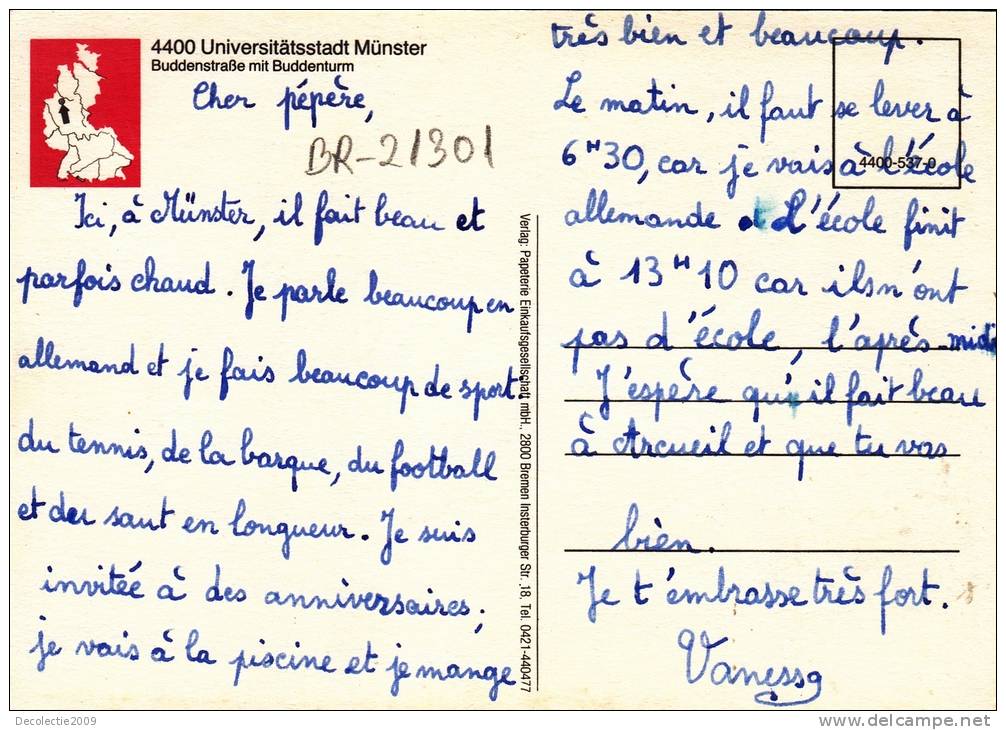 4400 Universitätsstadt Münster
Buddenstraße mit Buddenturm
Cher pépère,
BR-21301
Ici, à Münster, il fait beau et
parfois chaud. Je parle beaucoup en
allemand et je fais beaucoup de sport:
du tennis, de la barque, du football
et du saut en longueur. Je suis
invitée à des anniversaires;
je vais à la piscine et je mange
Verlag: Papeterie Einkaufsgesellschaft mbH., 2800 Bremen Insterburger Str. ,18. Tel. 0421-440477
très bien et beaucoup.
Le matin, il faut se lever à
6H30, car je vais à l'école
4400-537-0
allemande et L'école finit
à 13H10 car ils n'ont
pas d'école, l'après-midi
J'espère qu'il fait beau
à Arcueil et que tu vas
bien.
Je t'embrasse très fort.
Vanessa
Decolectie2009
delcampe.net